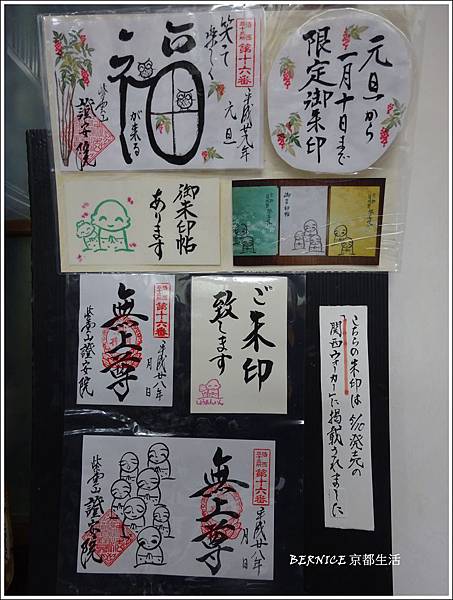 第十六番
笑って
楽しく
福
が来る
平成廿八年
元旦
紫雲山
證安院
元旦から
一月十日まで
限定御朱印
御朱印帖
あります
第十六番
平成廿八年
月 日
無上尊
紫雲山證安院
ご朱印
致します
こちらの朱印は 5/10発売の
「関西ウォーカー」に掲載されました
第十六番
平成廿八年
月 日
無上尊
紫雲山
證安院
BERNICE 京都生活